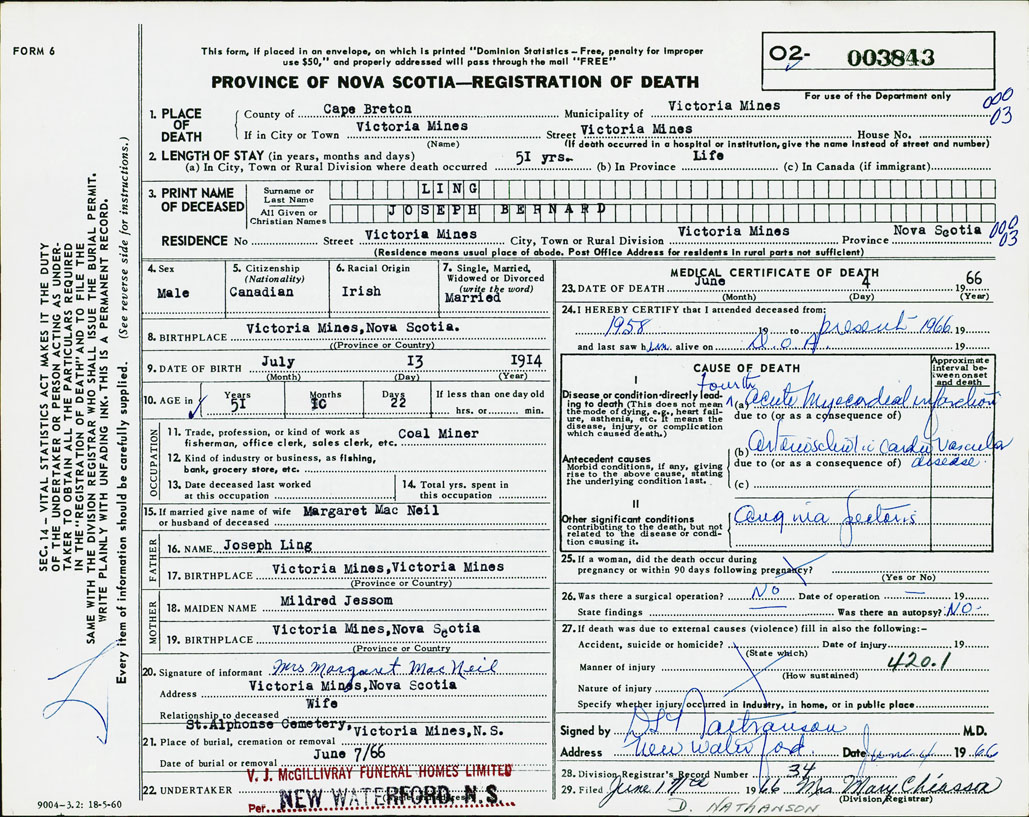 FORM 6
This form, if placed in an envelope, on which is printed "Dominion Statistics – Free, penalty for improper
use $50," and properly addressed will pass through the mail "FREE"
PROVINCE OF NOVA SCOTIA—REGISTRATION OF DEATH
02- 003843
For use of the Department only
000
03
1. PLACE OF DEATH
County of Cape Breton Municipality of Victoria Mines
If in City or Town Victoria Mines Street Victoria Mines House No.
(Name) (If death occurred in a hospital or institution, give the name instead of street and number)
2. LENGTH OF STAY (in years, months and days)
(a) In City, Town or Rural Division where death occurred 51 yrs. (b) In Province Life (c) In Canada (if immigrant)
3. PRINT NAME OF DECEASED
Surname or Last Name LING
All Given or Christian Names JOSEPH BERNARD
RESIDENCE No Street Victoria Mines City, Town or Rural Division Victoria Mines Province Nova Scotia
000
03
(Residence means usual place of abode. Post Office Address for residents in rural parts not sufficient)
4. Sex Male
5. Citizenship (Nationality) Canadian
6. Racial Origin Irish
7. Single, Married, Widowed or Divorced (write the word) Married
8. BIRTHPLACE Victoria Mines, Nova Scotia.
(Province or Country)
9. DATE OF BIRTH July 13 1914
(Month) (Day) (Year)
10. AGE in Years 51 Months 10 Days 22 If less than one day old hrs. or min.
OCCUPATION
11. Trade, profession, or kind of work as fisherman, office clerk, sales clerk, etc. Coal Miner
12. Kind of industry or business, as fishing, bank, grocery store, etc.
13. Date deceased last worked at this occupation
14. Total yrs. spent in this occupation
15. If married give name of wife or husband of deceased Margaret Mac Neil
FATHER
16. NAME Joseph Ling
17. BIRTHPLACE Victoria Mines, Victoria Mines
(Province or Country)
MOTHER
18. MAIDEN NAME Mildred Jessom
19. BIRTHPLACE Victoria Mines, Nova Scotia
(Province or Country
20. Signature of informant Mrs Margaret MacNeil
Address Victoria Mines, Nova Scotia
Relationship to deceased Wife
21. Place of burial, cremation or removal St. Alphonse Cemetery, Victoria Mines, N.S.
Date of burial or removal June 7/66
22. UNDERTAKER V. J. McGILLIVRAY FUNERAL HOMES LIMITED
Per NEW WATERFORD, N.S.
9004-3.2: 18-5-60
MEDICAL CERTIFICATE OF DEATH
23. DATE OF DEATH June 4 1966
(Month) (Day) (Year)
24. I HEREBY CERTIFY that I attended deceased from:
1958 19 to present 1966 19
and last saw him alive on D.O.A. 19
CAUSE OF DEATH
Approximate interval between onset and death
I
Disease or condition directly leading to death (This does not mean the mode of dying, e.g., heart failure, asthenia, etc. It means the disease, injury, or complication which caused death.)
Fourth
(a) Acute Myocardial infarction
due to (or as a consequence of)
Antecedent causes
Morbid conditions, if any, giving rise to the above cause, stating the underlying condition last.
(b) Arteriosclerotic Cardio Vascular disease
due to (or as a consequence of)
(c)
II
Other significant conditions contributing to the death, but not related to the disease or condition causing it.
Angina Pectoris
25. If a woman, did the death occur during pregnancy or within 90 days following pregnancy?
(Yes or No)
26. Was there a surgical operation? No Date of operation — 19
State findings — Was there an autopsy? No.
27. If death was due to external causes (violence) fill in also the following:–
Accident, suicide or homicide? Date of injury 19
(State which)
Manner of injury 420.1
(How sustained)
Nature of injury
Specify whether injury occurred in Industry, in home, or in public place
Signed by Nathanson M.D.
Address New Waterford Date June 4 1966
28. Division Registrar's Record Number 34
29. Filed June 1966 Mrs. Mary Chiasson
(Division Registrar)
D. NATHANSON
SEC. 14 – VITAL STATISTICS ACT MAKES IT THE DUTY
OF THE UNDERTAKER OR PERSON ACTING AS UNDER-
TAKER TO OBTAIN ALL THE PARTICULARS REQUIRED
IN THE "REGISTRATION OF DEATH" AND TO FILE THE
SAME WITH THE DIVISION REGISTRAR WHO SHALL ISSUE THE BURIAL PERMIT.
WRITE PLAINLY WITH UNFADING INK. THIS IS A PERMANENT RECORD.
Every item of information should be carefully supplied. (See reverse side for instructions.)